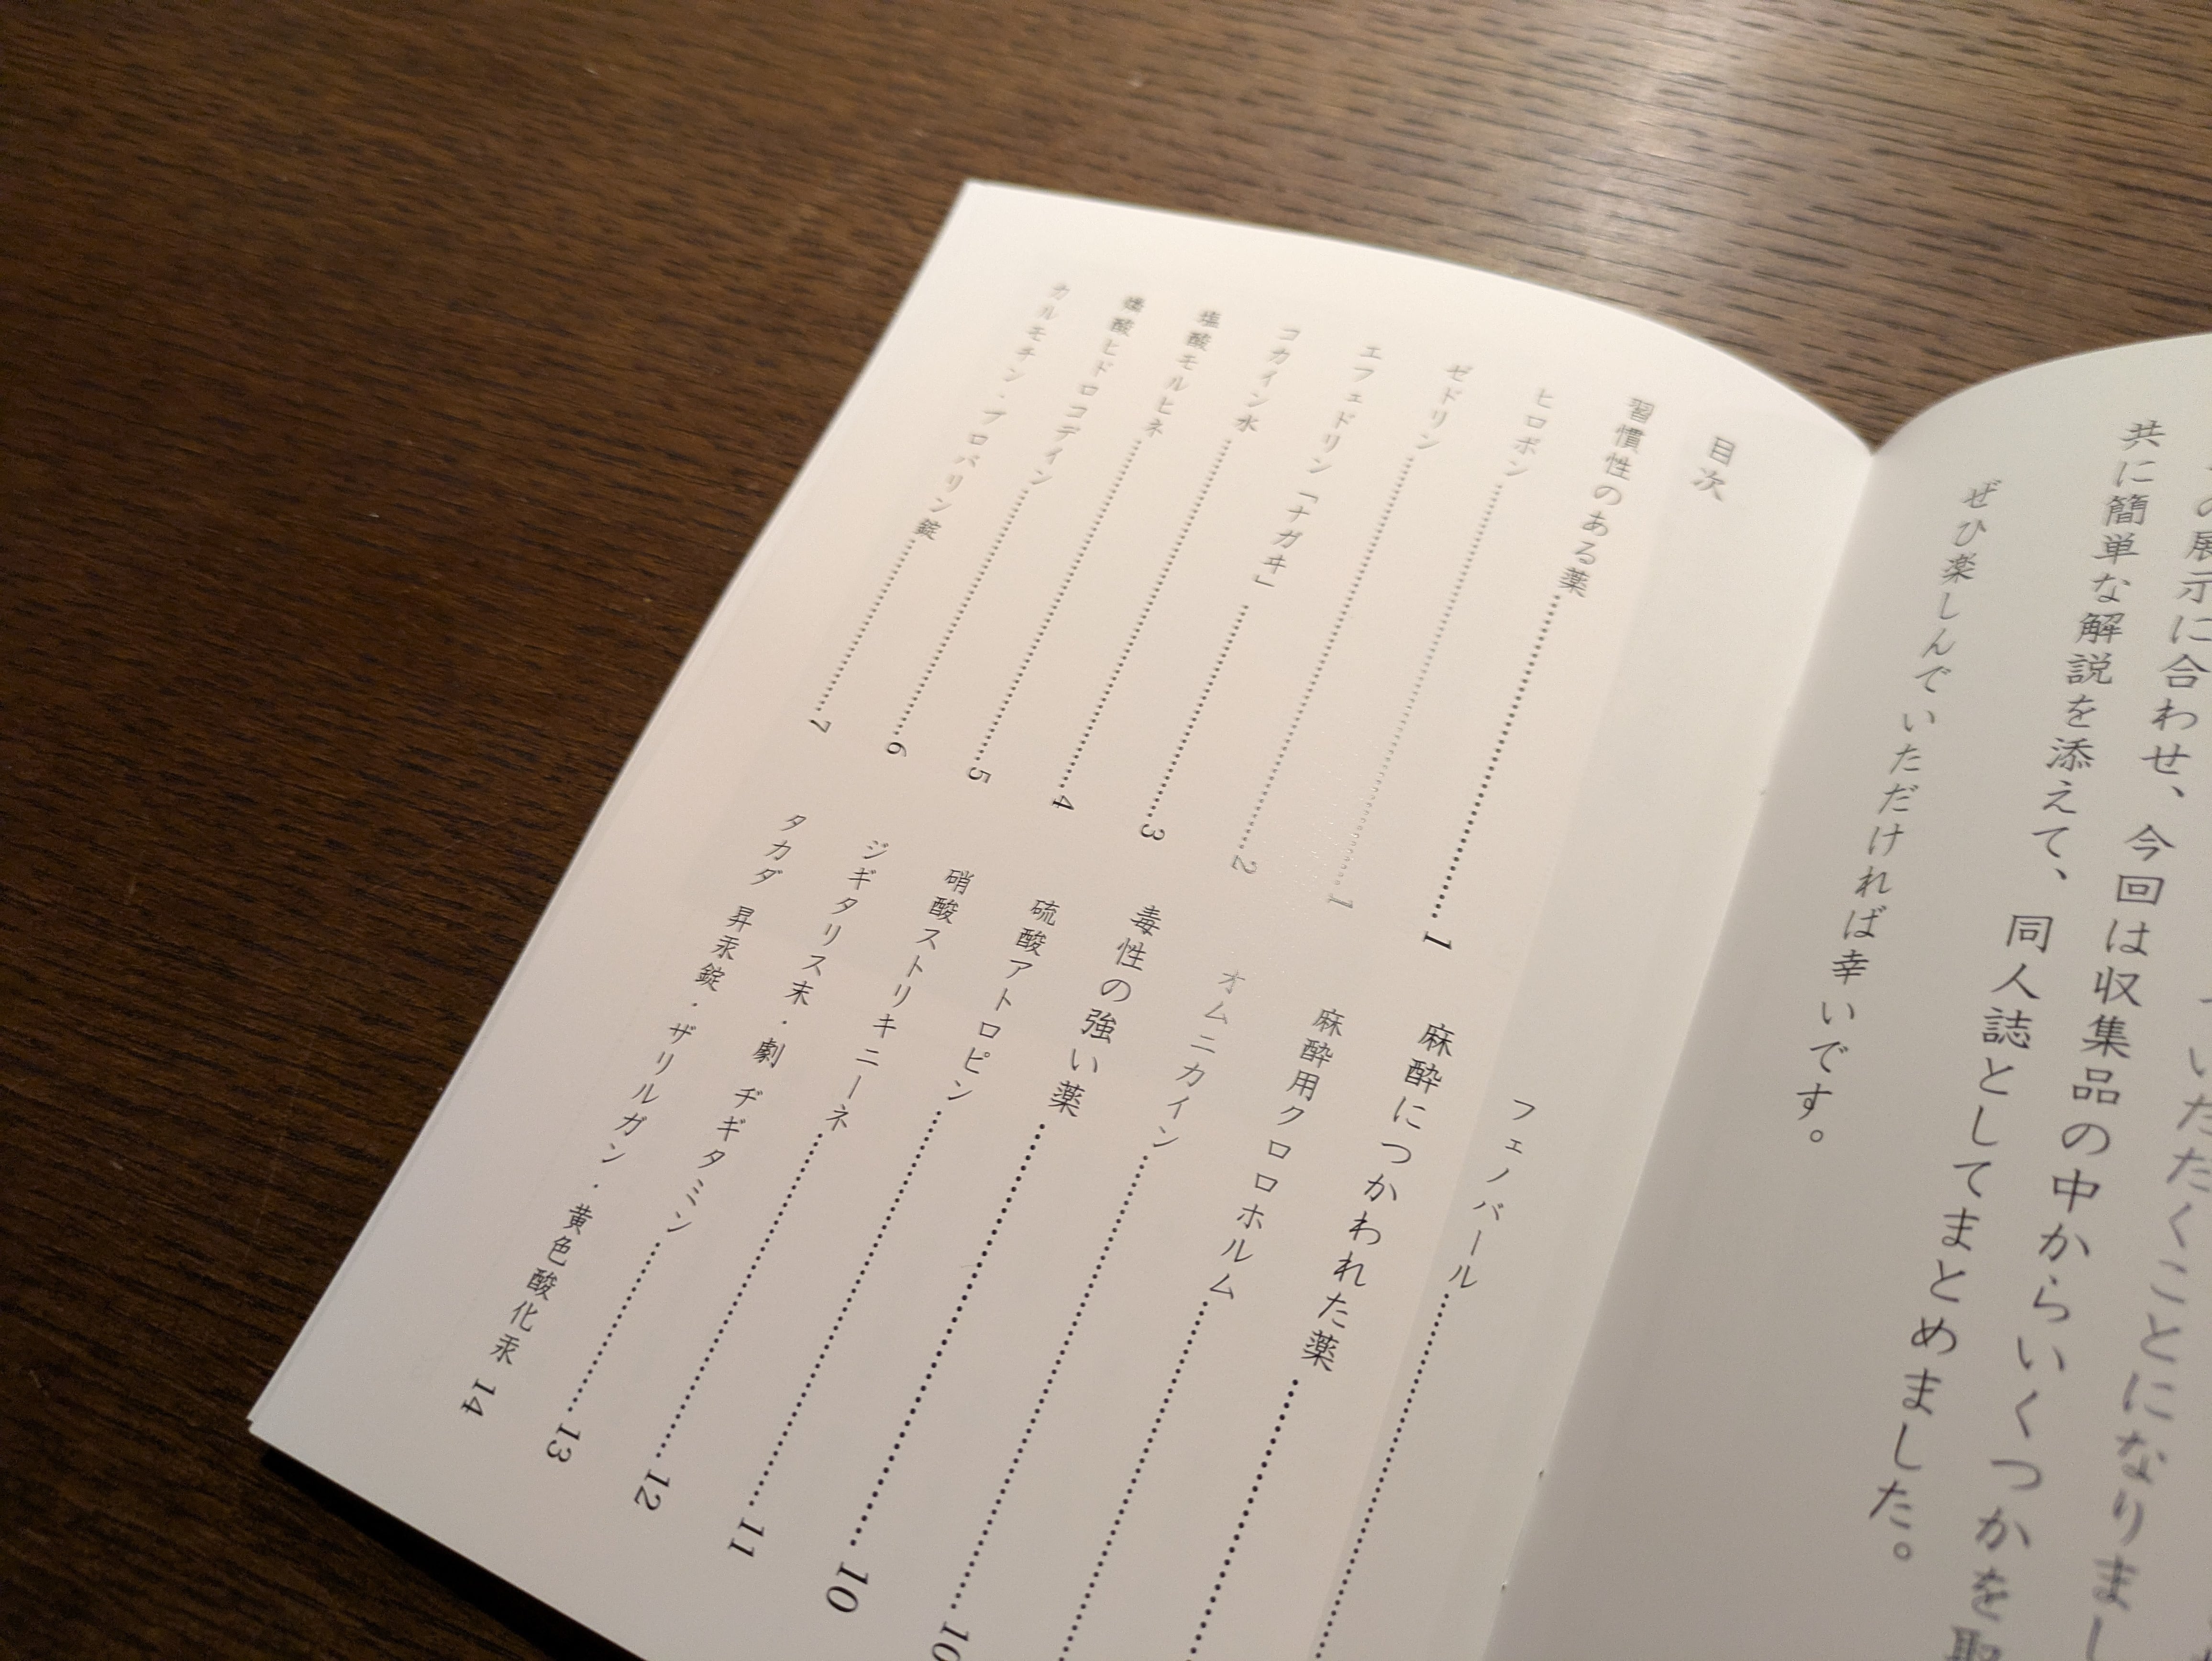 いただくことになりまし
の展示に合わせ、今回は収集品の中からいくつかを取
共に簡単な解説を添えて、同人誌としてまとめました。
ぜひ楽しんでいただければ幸いです。
目次
習慣性のある薬……………1
ヒロポン……………1
ゼドリン……………2
エフェドリン「ナガヰ」……………3
コカイン水……………4
塩酸モルヒネ……………5
塩酸ヒドロコデイン……………6
カルモチン・ブロバリン錠……………7
フェノバール……………
麻酔につかわれた薬……………
麻酔用クロロホルム……………
オムニカイン……………10
毒性の強い薬……………10
硫酸アトロピン……………11
硝酸ストリキニーネ……………12
ジギタリス末・劇 ヂギタミン……………13
タカダ 昇汞錠・ザリルガン・黄色酸化汞 14